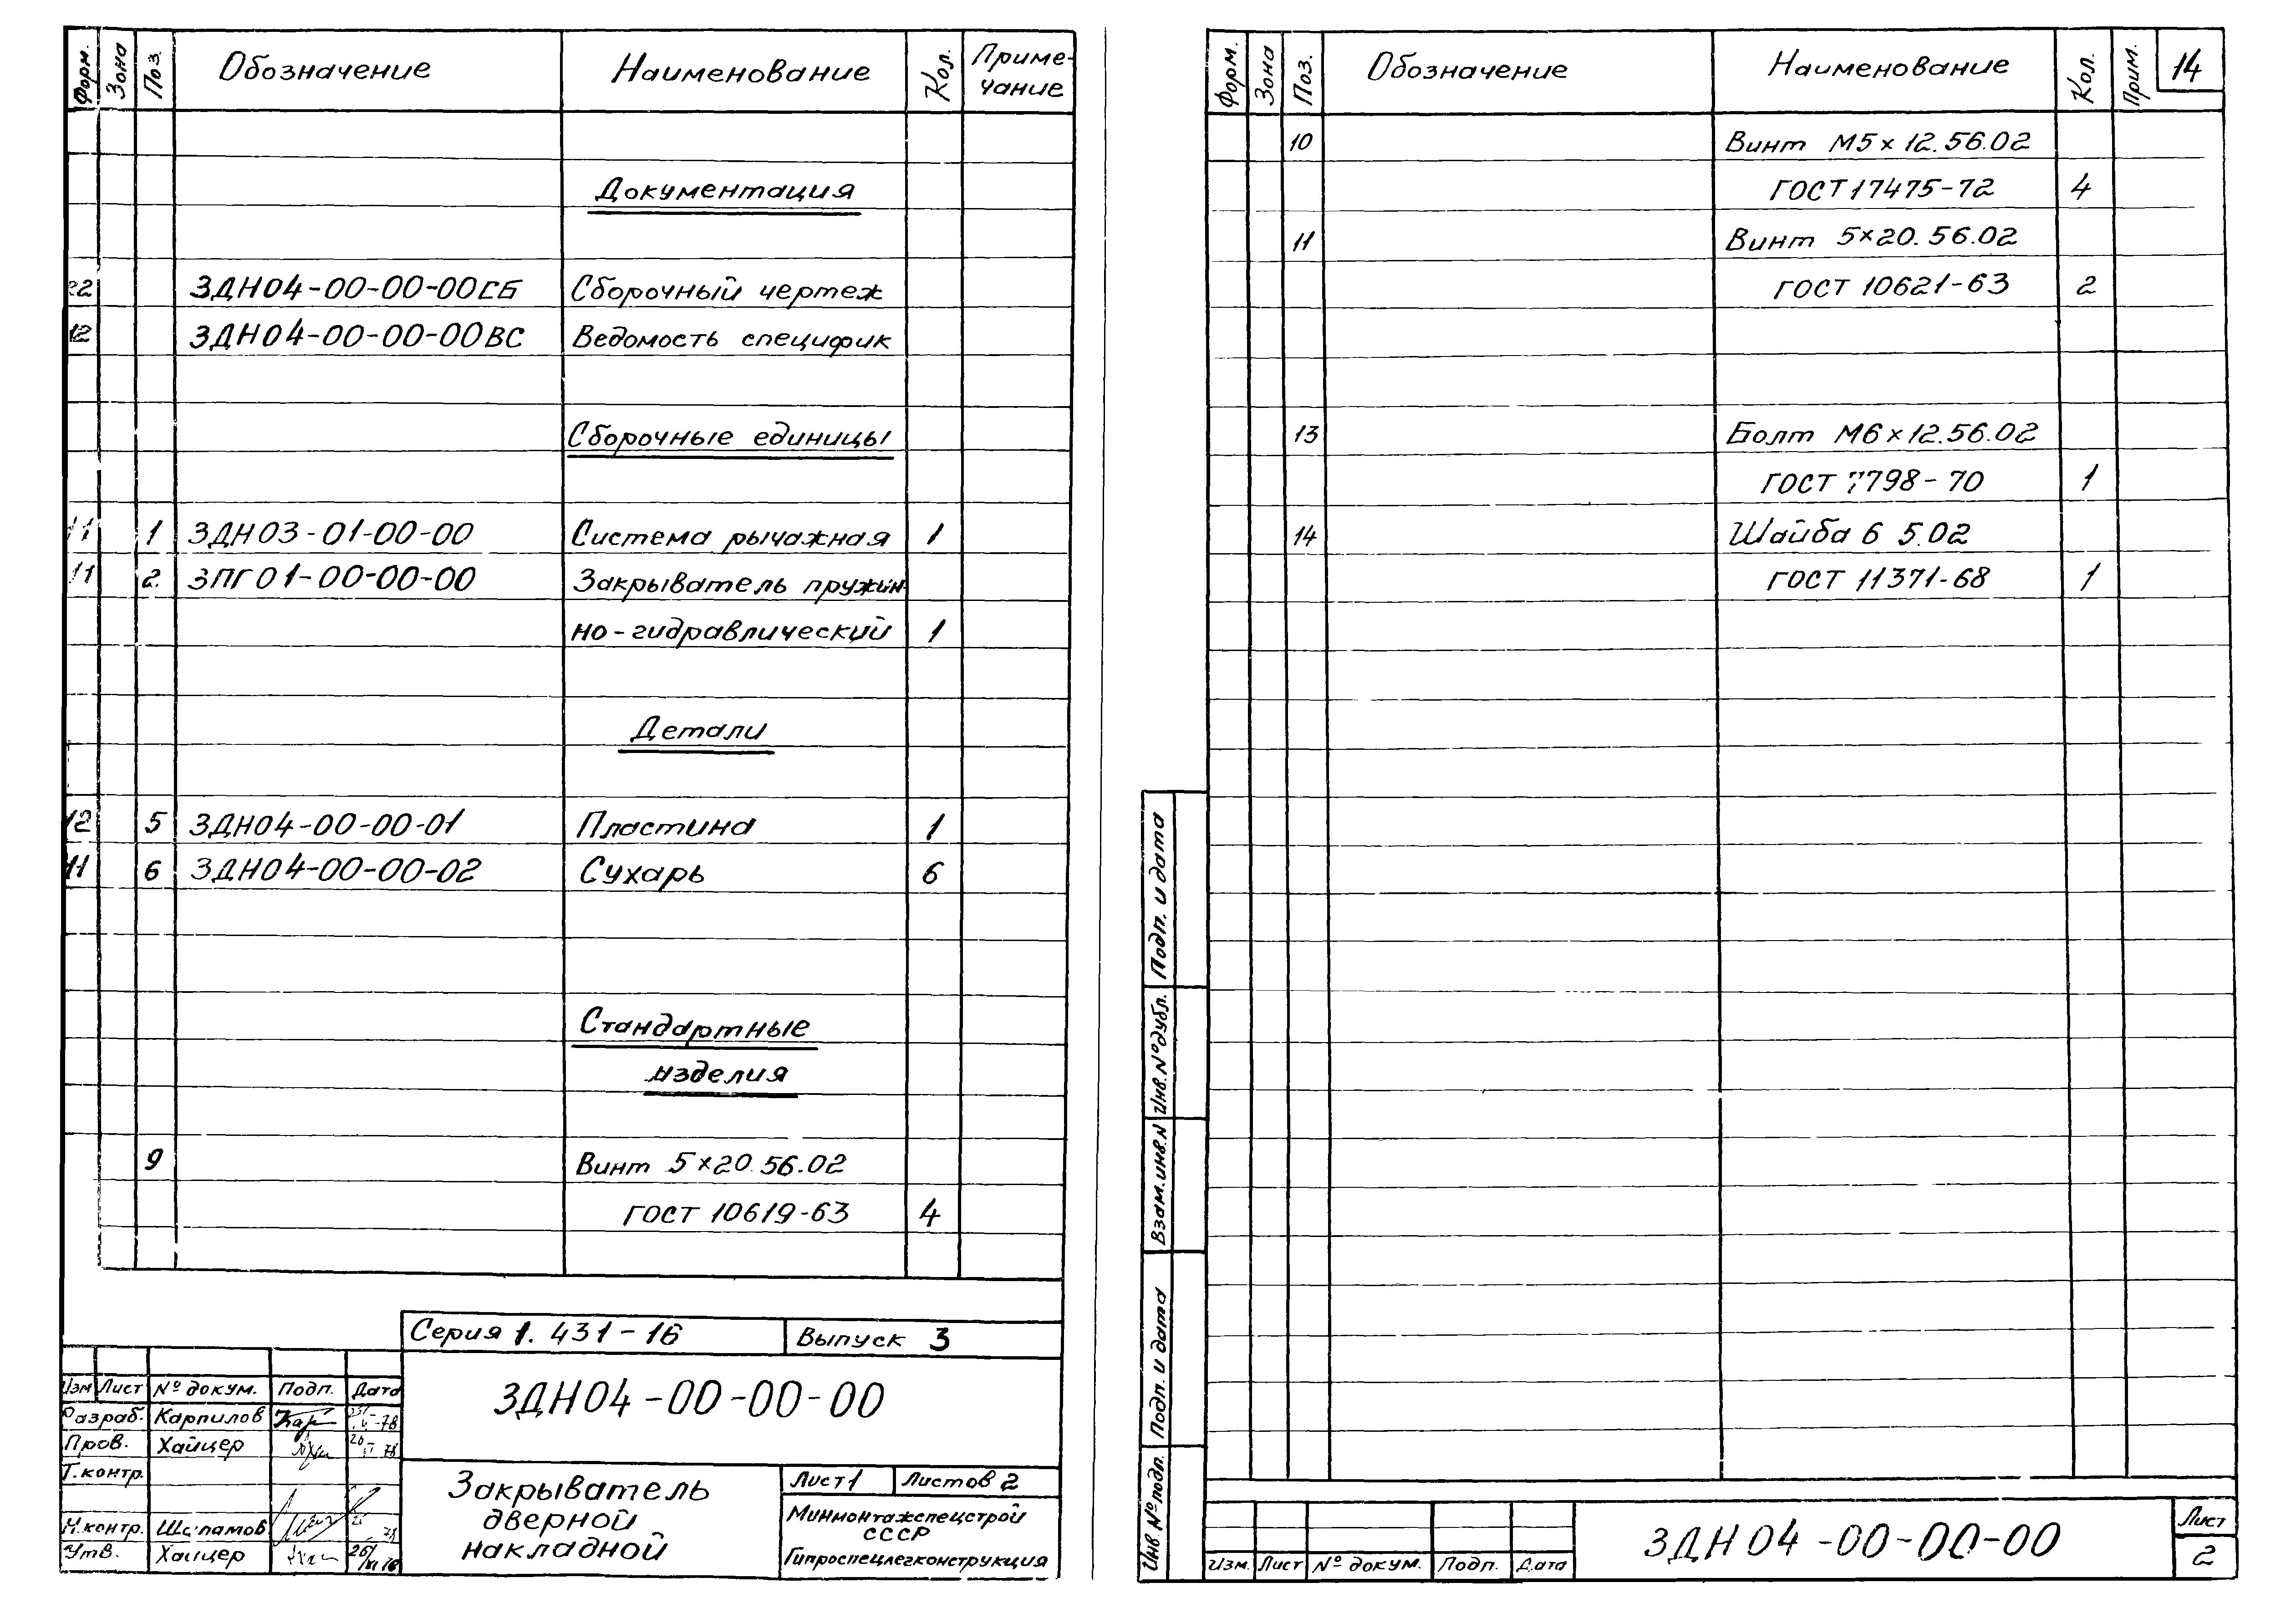 Форм. Зона Поз. Обозначение Наименование Кол. Приме-
чание
Документация
22 ЗДН04-00-00-00СБ Сборочный чертеж
12 ЗДН04-00-00-00ВС Ведомость специфик
Сборочные единицы
11 1 ЗДН03-01-00-00 Система рычажная 1
11 2 ЗПГ01-00-00-00 Закрыватель пружин-
но-гидравлический 1
Детали
12 5 ЗДН04-00-00-01 Пластина 1
11 6 ЗДН04-00-00-02 Сухарь 6
Стандартные
изделия
9 Винт 5×20.56.02
ГОСТ 10619-63 4
Серия 1.431-16 Выпуск 3
ЗДН04-00-00-00
Изм Лист № докум. Подп. Дата
Разраб. Карпилов Кар
Пров. Хайцер
Т.контр.
Н.контр.
Утв. Хайцер
Закрыватель
дверной
накладной
Лист 1 Листов 2
Минмонтажспецстрой
СССР
Гипроспецлегконструкция
Форм. Зона Поз. Обозначение Наименование Кол. Прим. 14
10 Винт М5×12.56.02
ГОСТ 17475-72 4
11 Винт 5×20.56.02
ГОСТ 10621-63 2
13 Болт М6×12.56.02
ГОСТ 7798-70 1
14 Шайба 6 5.02
ГОСТ 11371-68 1
Подп. и дата
Инв. № дубл.
Взам. инв. N
Подп. и дата
Инв № подл.
Изм. Лист № докум. Подп. Дата
ЗДН04-00-00-00
Лист
2